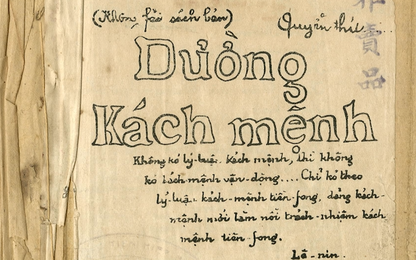 (Không fải sách bán) Quyển thứ
賣品
Đường
Kách mệnh
Không kó lý-luận kách mệnh, thì không
kó kách mệnh vận-động.... Chỉ kó theo
lý-luận kách-mệnh tiên-fong, đảng kách-
mệnh mới làm nổi trách-nhiệm kách
mệnh tiên-fong.
Lê-nin.